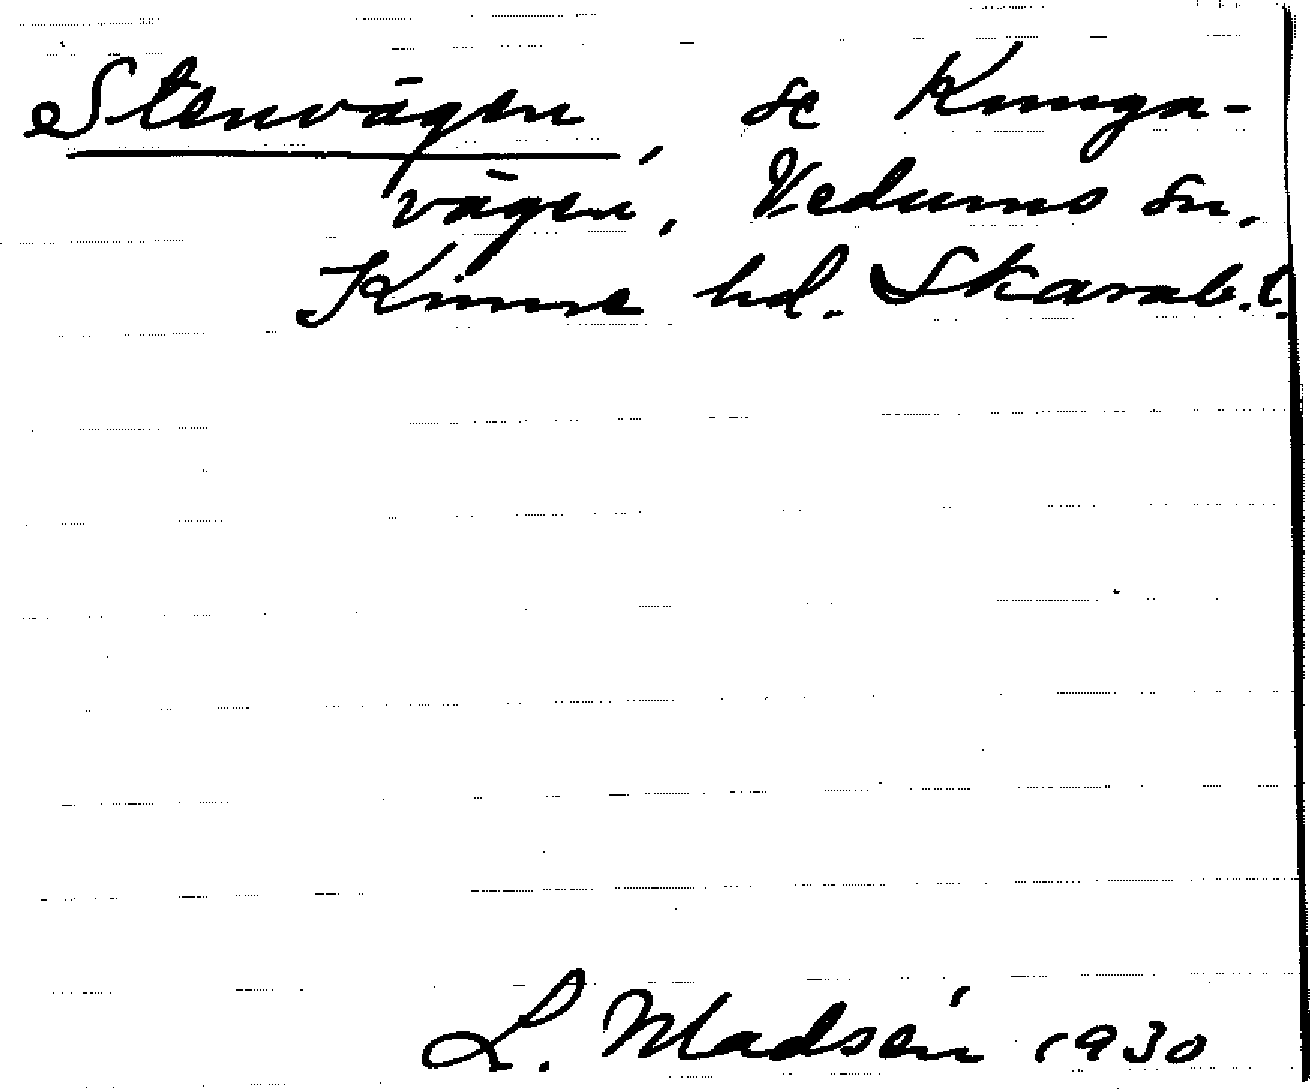 Stenvägen, se Kunga-
vägen, Vedums sn,
Kinne hd. Skarab. l.
L. Madsén 1930